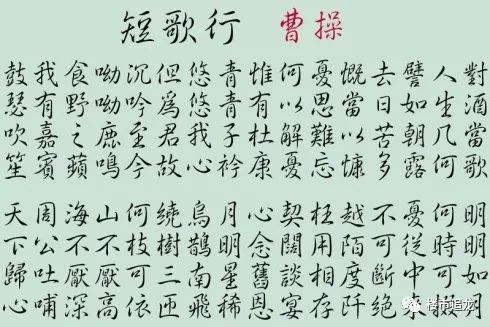 短歌行 曹操
對酒當歌
人生几何
譬如朝露
去日苦多
慨當以慷
憂思難忘
何以解憂
惟有杜康
青青子衿
悠悠我心
但爲君故
沉吟至今
呦呦鹿鳴
食野之蘋
我有嘉賓
鼓瑟吹笙
明明如
何時可
憂從中
不可斷绝
越陌度阡
枉用相存
契闊談宴
心念舊恩
月明星稀
烏鵲南飛
繞樹三匝
何枝可依
山不厭高
海不厭深
周公吐哺
天下歸心
楼市追龙